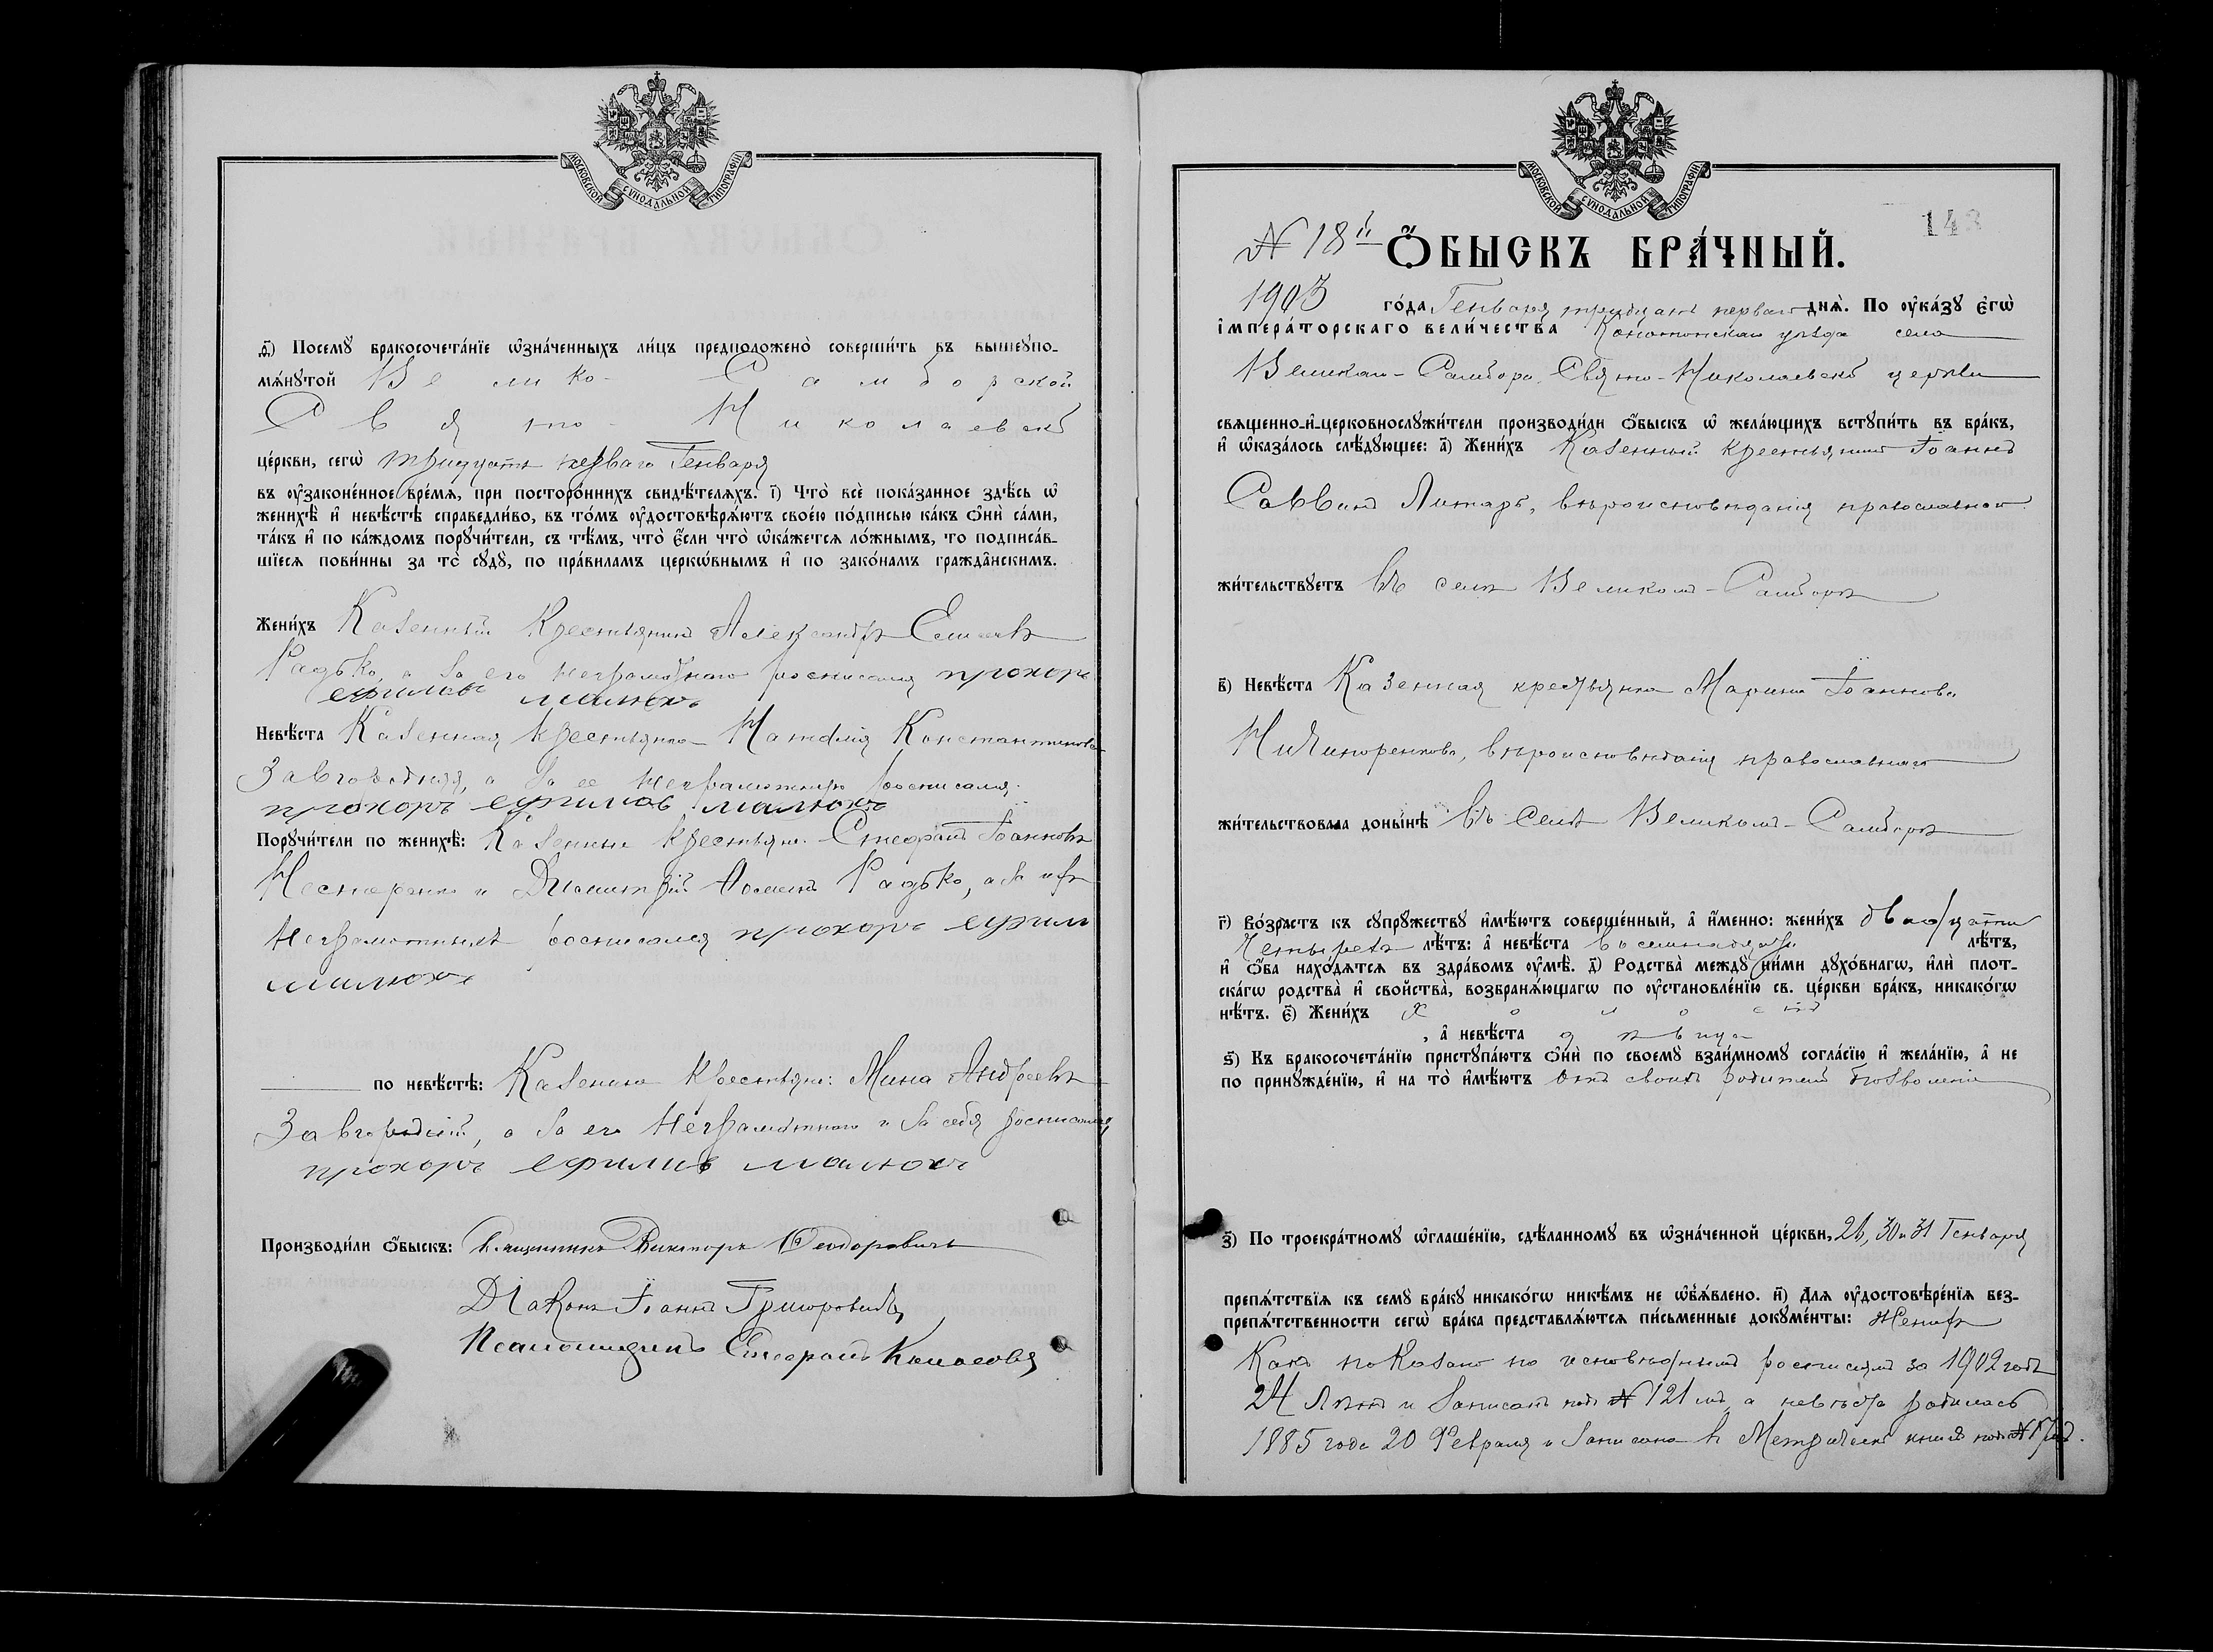 МОСКОВСКОЙ СѴНОДАЛЬНОЙ ТИПОГРАФІИ
Посемꙋ бракосочета́нїе ѡ҆зна́ченныхъ ли́цъ предположено̀ соверши́ть въ вышеꙋпо-
мѧ́нꙋтой Велико-Самборской
Свято-Николаевской
це́ркви, сегѡ̀ тридцать перваго Генваря
въ ᲂу҆законе́нное вре́мѧ, при посторо́ннихъ свидѣ́телѧхъ. і҃) Что̀ всѐ пока́занное здѣ́сь ѡ҆
женихѣ̀ и҆ невѣ́стѣ справедли́во, въ то́мъ ᲂу҆достовѣрѧ́ютъ свое́ю по́дписью ка́къ ѻ҆нѝ са́ми,
та́къ и҆ по ка́ждомъ порꙋчи́тели, съ тѣ́мъ, что̀ є҆́сли что̀ ѡ҆ка́жетсѧ ло́жнымъ, то подписа́в-
шїесѧ пови́нны за то̀ сꙋдꙋ̀, по пра́виламъ церкѡ́внымъ и҆ по зако́намъ гражда̂нскимъ.
Жени́хъ Казенный Крестьянинъ Александръ
Радько, а за его неграмотнаго росписался прохоръ
ефимовъ малюхъ
Невѣ́ста Казенная крестьянка Наталія Константинова
Завгородняя, а за ее неграмотную росписался
прохоръ ефимовъ малюхъ
Порꙋчи́тели по женихѣ̀: Казенные крестьяне: Стефанъ Іоанновъ
Нестеренко и Димитрій Радько, а за ихъ
неграмотныхъ росписался прохоръ ефим
малюхъ
по невѣ́стѣ: Казенные крестьяне: Мина Андреевъ
Завгородній, а за его неграмотнаго и за себя росписался
прохоръ ефимовъ малюхъ
Производи́ли ѻ҆́быскъ: Священникъ Викторъ Ѳеодоровичъ
Діаконъ Іоаннъ Григоровичъ
Псаломщикъ Стефанъ
МОСКОВСКОЙ СѴНОДАЛЬНОЙ ТИПОГРАФІИ
143
N 18й ѺБЫСКЪ БРА́ЧНЫЙ.
1903 го́да Генваря тридцать перваго днѧ̀. По ᲂу҆ка́зꙋ є҆гѡ̀
і҆мпера́торскаго вели́чества Конотопскаго уѣзда села
Великаго-Самбора Свято-Николаевской церкви
свѧщенно-и҆-церковнослꙋжи́тели производи́ли ѻ҆́быскъ ѡ҆ жела́ющихъ встꙋпи́ть въ бра́къ,
и҆ ѡ҆каза́лось слѣ́дꙋющее: а҃) Жени́хъ Казенный крестьянинъ Іоаннъ
Саввинъ Литаръ, вѣроисповѣданія православнаго
жи́тельствꙋетъ въ селѣ Великомъ-Самборѣ
в҃) Невѣ́ста Казенная крестьянка Марина Іоаннова
Ничипоренкова, вѣроисповѣданія православнаго
жи́тельствовала доны́нѣ въ селѣ Великомъ-Самборѣ
г҃) Во́зрастъ къ сꙋпрꙋ́жествꙋ и҆мѣ́ютъ соверше́нный, а҆ и҆́менно: жени́хъ двадцати
Четырехъ лѣ́тъ: а҆ невѣ́ста восемнадцати лѣ́тъ,
и҆ ѻ҆́ба нахо́дѧтсѧ въ здра́вомъ ᲂу҆мѣ̀. д҃) Родства̀ междꙋ̀ ни́ми дꙋхо́внагѡ, и҆лѝ плот-
ска́гѡ родства̀ и҆ свойства̀, возбранѧ́ющагѡ по ᲂу҆становле́нїю св. це́ркви бра́къ, никако́гѡ
нѣ́тъ. є҃) Жени́хъ холостъ
, а҆ невѣ́ста дѣвица
ѕ҃) Къ бракосочета́нїю пристꙋпа́ютъ ѻ҆нѝ по своемꙋ̀ взаи́мномꙋ согла́сїю и҆ жела́нїю, а҆ не
по принꙋжде́нїю, и҆ на то̀ и҆мѣ́ютъ отъ своихъ родителей позволеніе
з҃) По троекра́тномꙋ ѡ҆глаше́нїю, сдѣ́ланномꙋ въ ѡ҆зна́ченной це́ркви, 26, 30 и 31 Генваря
препѧ́тствїѧ къ семꙋ̀ бра́кꙋ никако́гѡ никѣ́мъ не ѡ҆б̾ѧ́влено. и҃) Длѧ ᲂу҆достовѣре́нїѧ без-
препѧ́тственности сегѡ̀ бра́ка представлѧ́ютсѧ пи́сьменные докꙋме́нты: Женихъ
Какъ показано по исповѣднымъ росписямъ за 1902 годъ
24 лѣтъ и записанъ подъ N 121мъ, а невѣста родилась
1885 года 20 Февраля и записана въ Метрической книгѣ подъ N